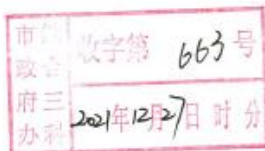 市政府办
综合三科
收字第 663 号
2021年12月27日 时 分